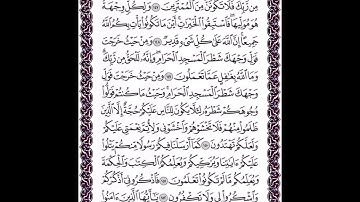 مِن رَّبِّكَ فَلَا تَكُونَنَّ مِنَ ٱلْمُمْتَرِينَ ١٤٧ وَلِكُلٍّ وِجْهَةٌ
هُوَ مُوَلِّيهَا فَٱسْتَبِقُوا۟ ٱلْخَيْرَٰتِ أَيْنَ مَا تَكُونُوا۟ يَأْتِ بِكُمُ ٱللَّهُ
جَمِيعًا إِنَّ ٱللَّهَ عَلَىٰ كُلِّ شَىْءٍ قَدِيرٌ ١٤٨ وَمِنْ حَيْثُ خَرَجْتَ
فَوَلِّ وَجْهَكَ شَطْرَ ٱلْمَسْجِدِ ٱلْحَرَامِ وَإِنَّهُۥ لَلْحَقُّ مِن رَّبِّكَ
وَمَا ٱللَّهُ بِغَٰفِلٍ عَمَّا تَعْمَلُونَ ١٤٩ وَمِنْ حَيْثُ خَرَجْتَ فَوَلِّ
وَجْهَكَ شَطْرَ ٱلْمَسْجِدِ ٱلْحَرَامِ وَحَيْثُ مَا كُنتُمْ فَوَلُّوا۟
وُجُوهَكُمْ شَطْرَهُۥ لِئَلَّا يَكُونَ لِلنَّاسِ عَلَيْكُمْ حُجَّةٌ إِلَّا ٱلَّذِينَ
ظَلَمُوا۟ مِنْهُمْ فَلَا تَخْشَوْهُمْ وَٱخْشَوْنِى وَلِأُتِمَّ نِعْمَتِى عَلَيْكُمْ
وَلَعَلَّكُمْ تَهْتَدُونَ ١٥٠ كَمَآ أَرْسَلْنَا فِيكُمْ رَسُولًا مِّنكُمْ يَتْلُوا۟
عَلَيْكُمْ ءَايَٰتِنَا وَيُزَكِّيكُمْ وَيُعَلِّمُكُمُ ٱلْكِتَٰبَ وَٱلْحِكْمَةَ
وَيُعَلِّمُكُم مَّا لَمْ تَكُونُوا۟ تَعْلَمُونَ ١٥١ فَٱذْكُرُونِىٓ أَذْكُرْكُمْ
وَٱشْكُرُوا۟ لِى وَلَا تَكْفُرُونِ ١٥٢ يَٰٓأَيُّهَا ٱلَّذِينَ ءَامَنُوا۟